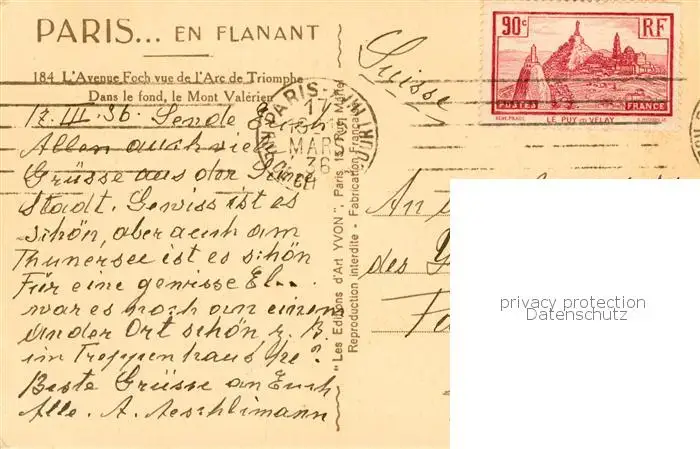 PARIS... EN FLANANT
184 L'Avenue Foch vue de l'Arc de Triomphe
Dans le fond, le Mont Valérien
17. III. 36. Sende Euch
Allen auch viele
Grüsse aus der
Stadt. Gewiss ist es
schön, aber auch am
Thunersee ist es schön
Für eine gewisse El..
wär es noch an einem
ander Ort schön, z. B.
im Treppenhaus he?
Beste Grüsse an Euch
Alle. A. Aeschlimann
"Les Editions d'Art YVON", Paris, 15, Rue Martel
Reproduction interdite - Fabrication Française
Suisse
PARIS
17
MARS
36
90c RF
POSTES FRANCE
LE PUY en VELAY
An
des
privacy protection
Datenschutz